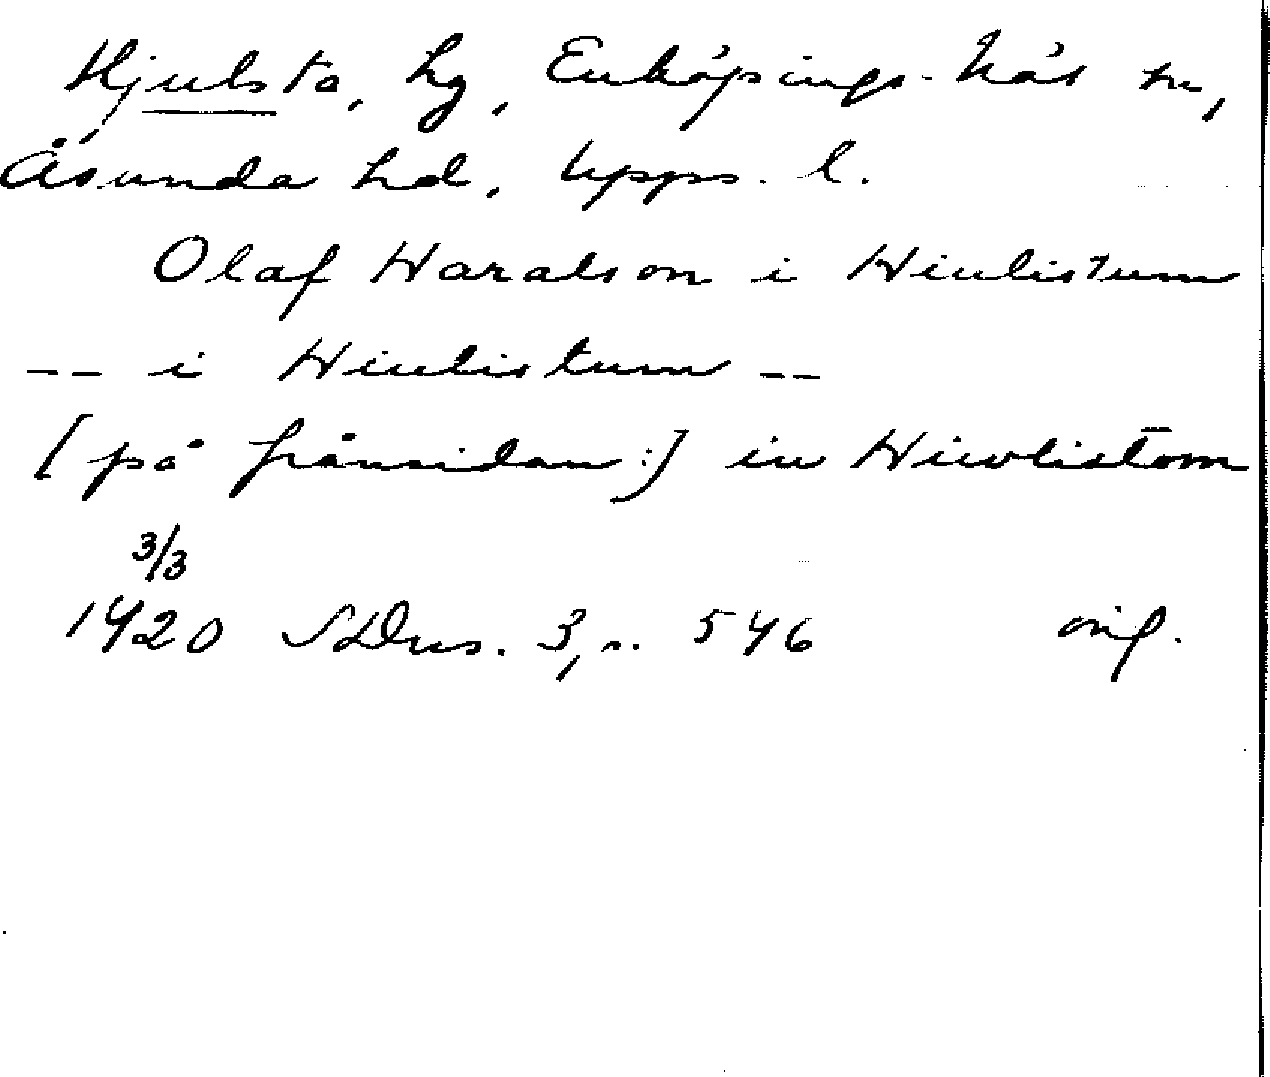 Hjulsta, hg, Enköpings-Näs sn,
Åsunda hd, Upps. l.
Olaf Haralson i Hiulistum
-- i Hiulistum --
[på frånsidan:] in Hiwlistom̄
3/3
1420 SDns. 3, s. 546 orig.